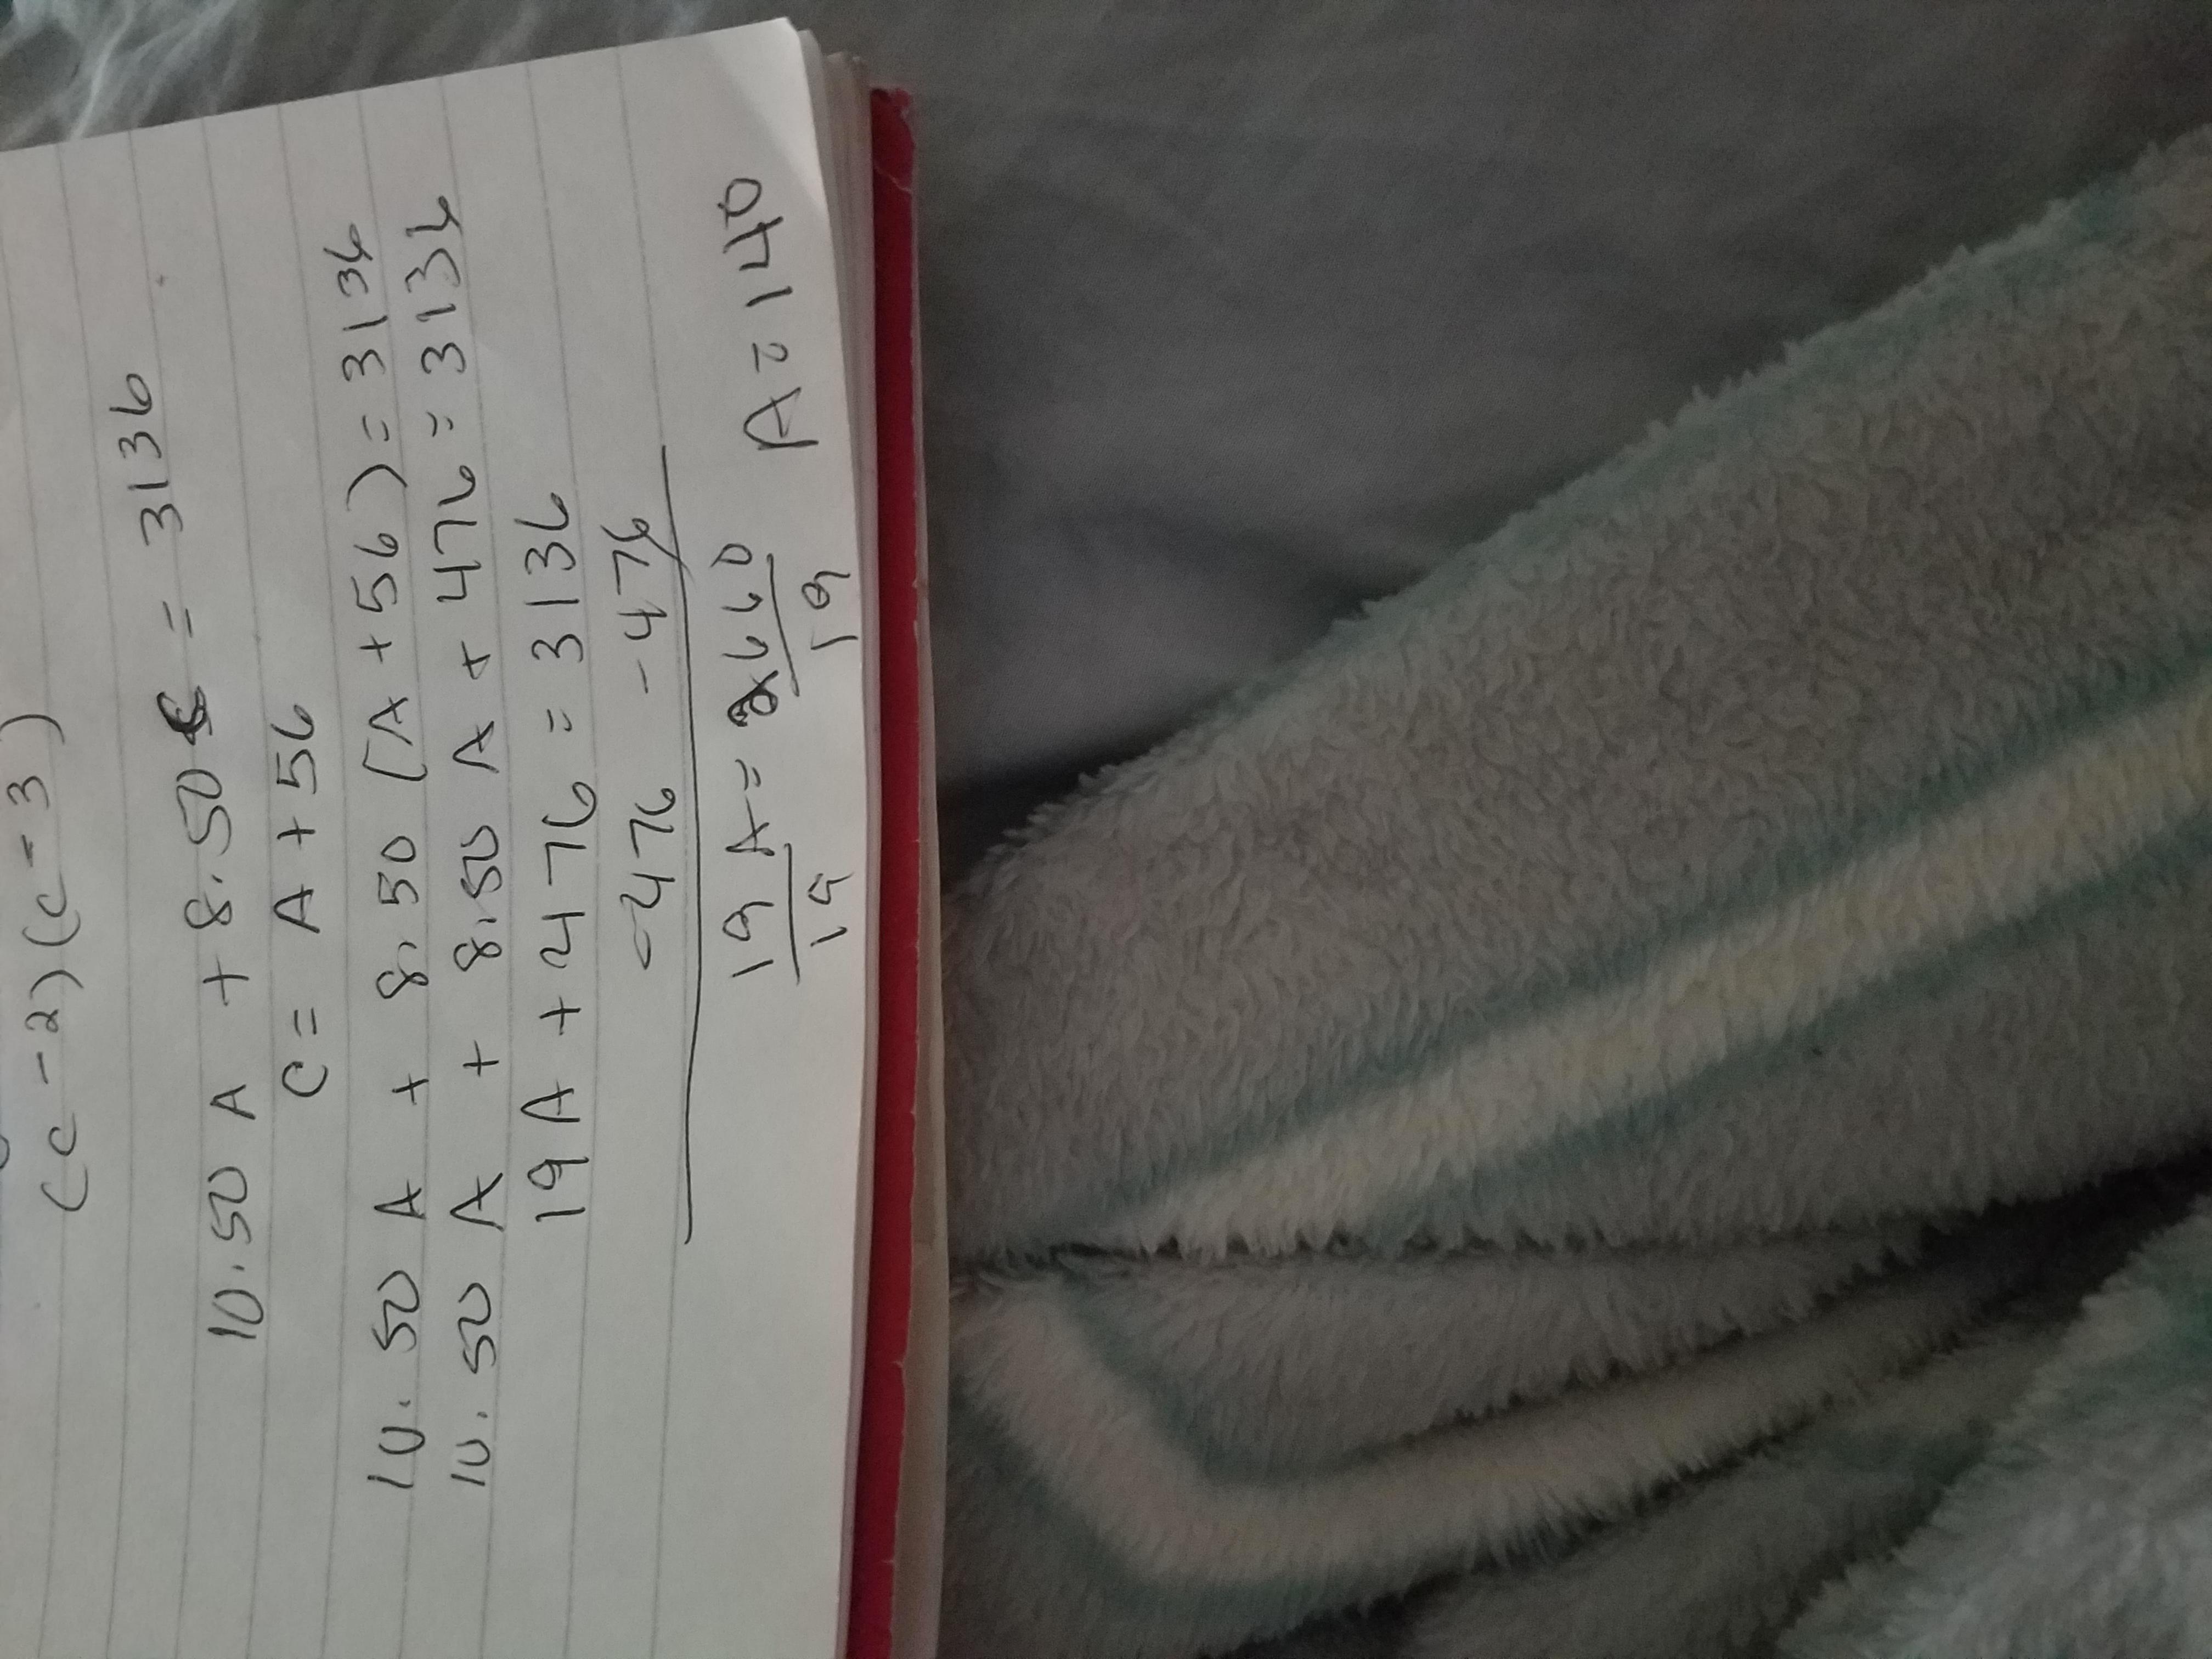 (c-2)(c-3)
10.50 A + 8.50 C = 3136
C = A + 56
10.50 A + 8.50 (A + 56) = 3136
10.50 A + 8.50 A + 476 = 3136
19 A + 476 = 3136
-476 -476
19 A = 2660 A = 140
19 19